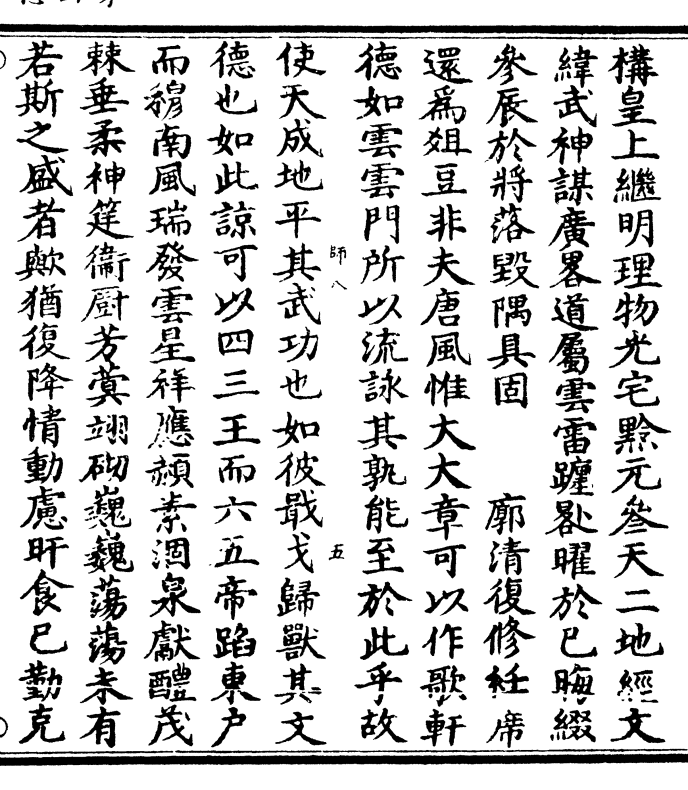 構皇上繼明理物光宅黔元參天二地經文
緯武神謀廣畧道屬雲雷躔晷曜於已晦綴
參辰於將落毀隅具固　廓清復修衽席
還為爼豆非夫唐風惟大大章可以作歌軒
德如雲雲門所以流詠其孰能至於此乎故
師八
五
使天成地平其武功也如彼戢戈歸獸其文
德也如此諒可以四三王而六五帝蹈東户
而穆南風瑞發雲星祥應頳素涸泉獻醴茂
棘垂柔神筵衞厨芳蓂翊砌巍巍蕩蕩未有
若斯之盛者歟猶復降情動慮旰食已勤克